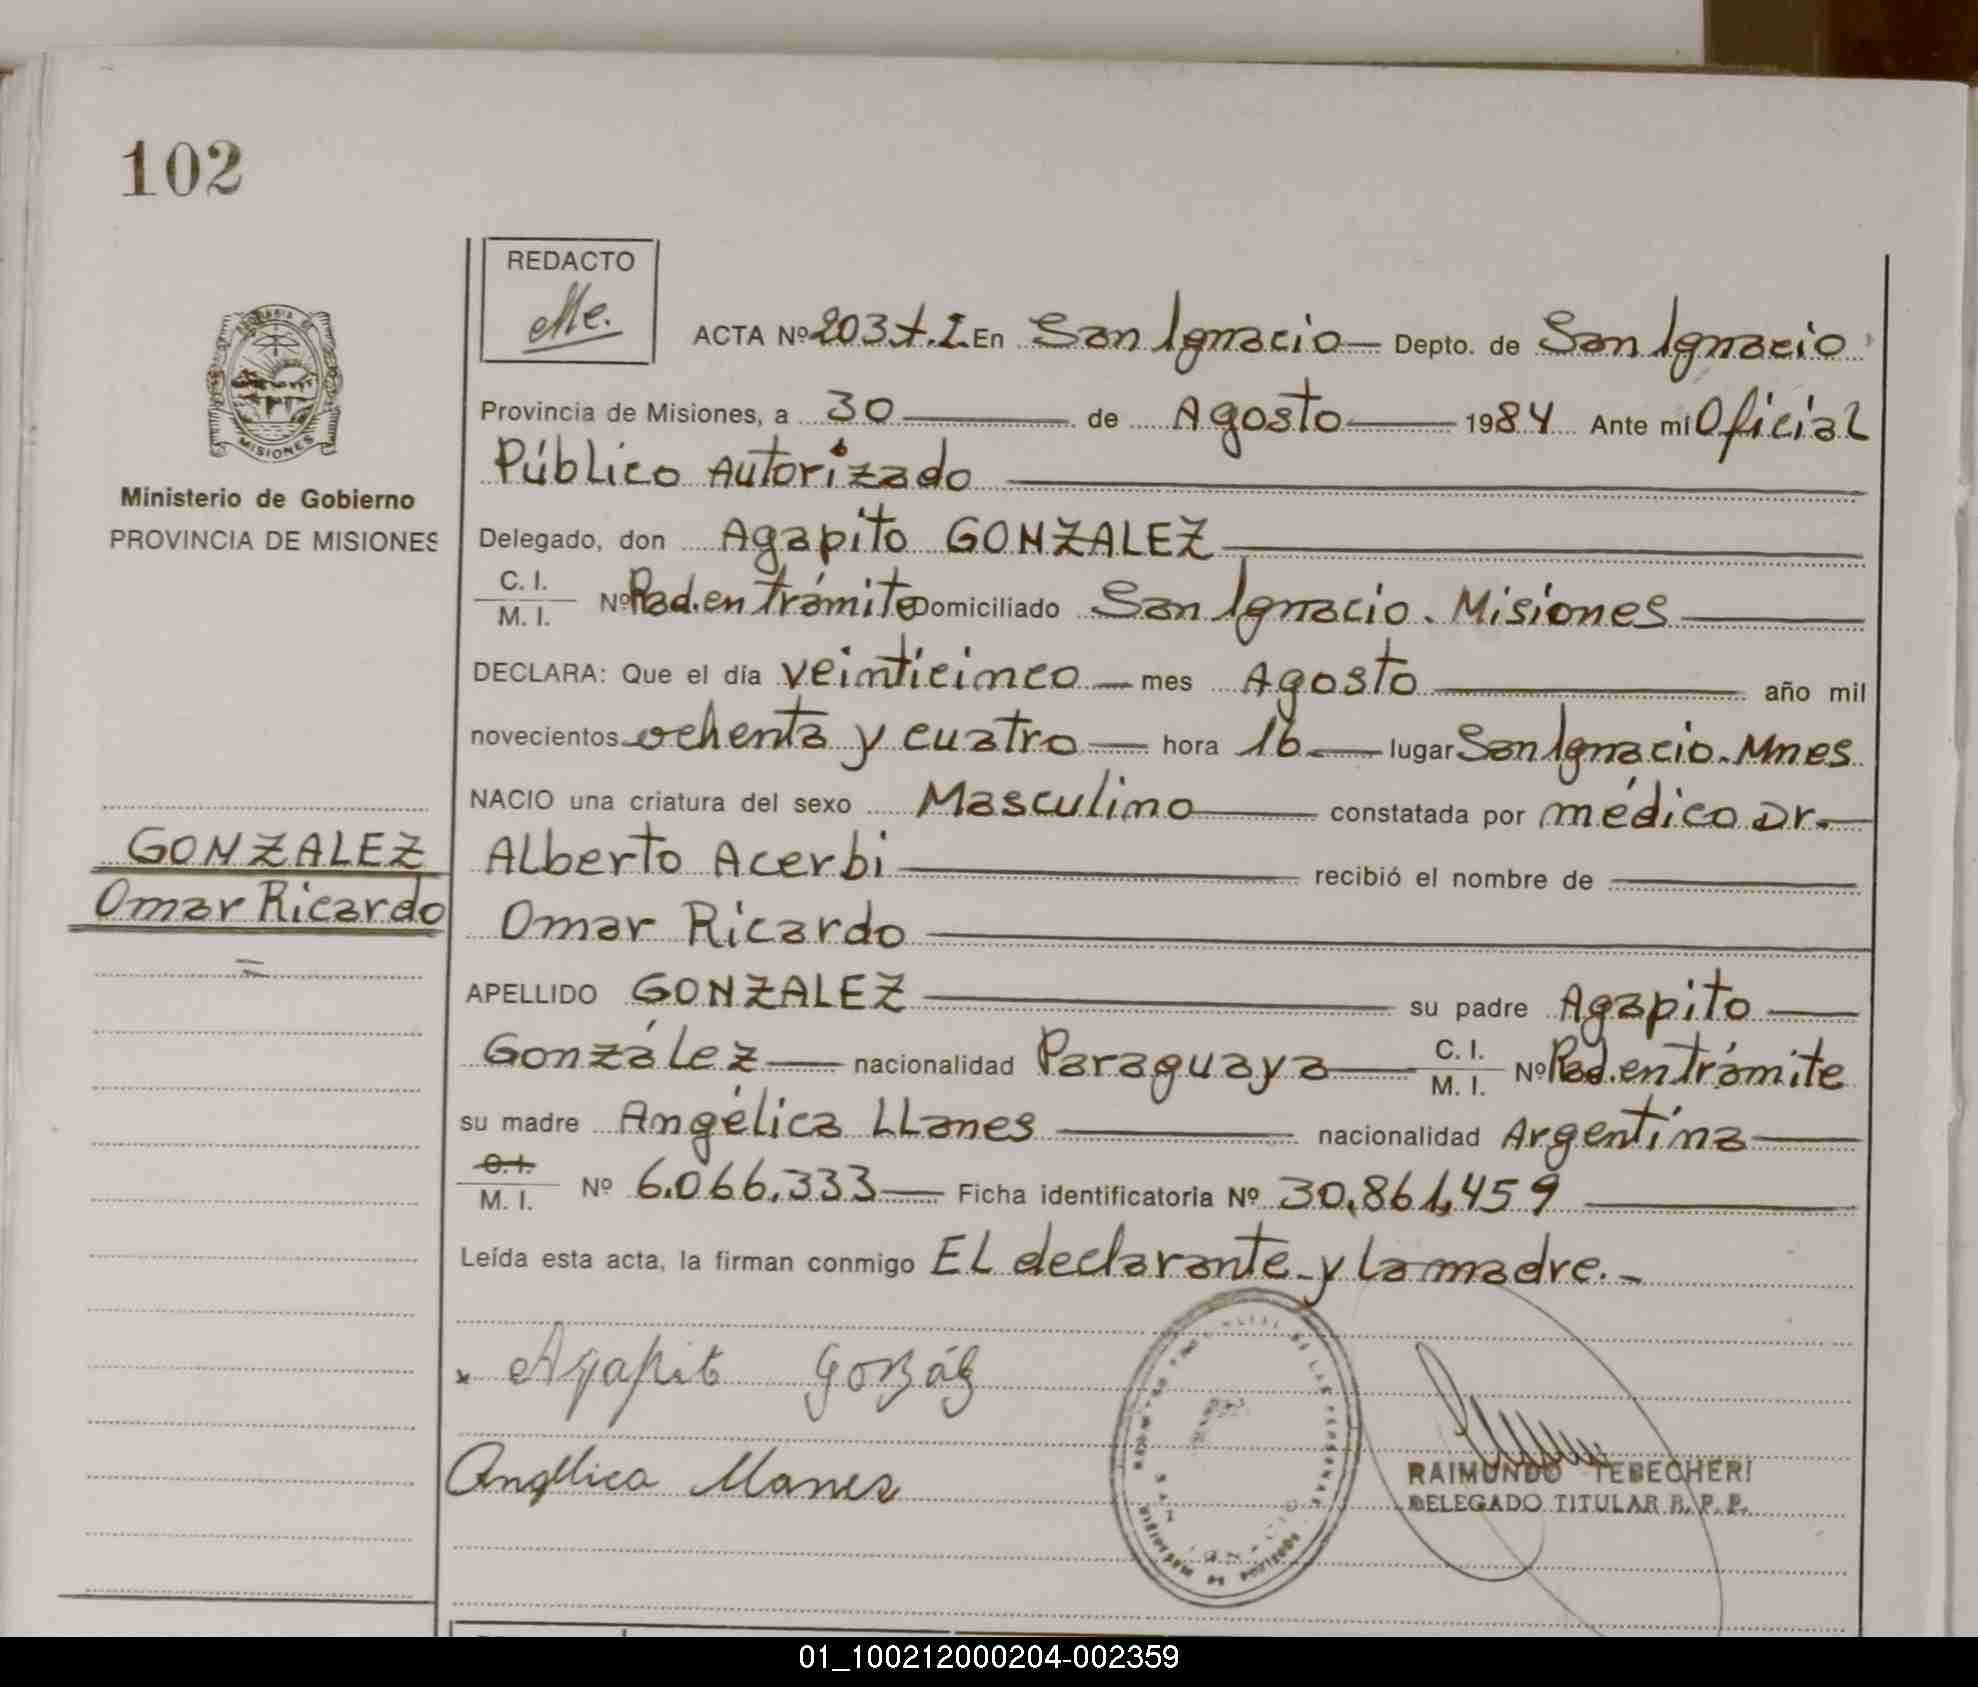 102
REDACTO
Me.
ACTA Nº 203 t. I. En San Ignacio — Depto. de San Ignacio
Provincia de Misiones, a 30 — de Agosto — 1984 Ante mi Oficial
Público Autorizado
Ministerio de Gobierno
PROVINCIA DE MISIONES
Delegado, don Agapito GONZALEZ
C. I.
M. I. Nº Rad. en trámite Domiciliado San Ignacio. Misiones
DECLARA: Que el día veinticinco — mes Agosto — año mil
novecientos ochenta y cuatro — hora 16 — lugar San Ignacio. Mnes
NACIO una criatura del sexo Masculino — constatada por médico Dr.
GONZALEZ
Omar Ricardo
Alberto Acerbi — recibió el nombre de
Omar Ricardo
APELLIDO GONZALEZ — su padre Agapito
González — nacionalidad Paraguaya — C. I. M. I. Nº Rad. en trámite
su madre Angélica LLanes — nacionalidad Argentina
C. I.
M. I. Nº 6.066.333 — Ficha identificatoria Nº 30.861.459
Leída esta acta, la firman conmigo EL declarante y la madre.-
x Agapito Gonzáz
Angélica Llanes
RAIMUNDO TEBECHERI
DELEGADO TITULAR R. P. P.
01_100212000204-002359